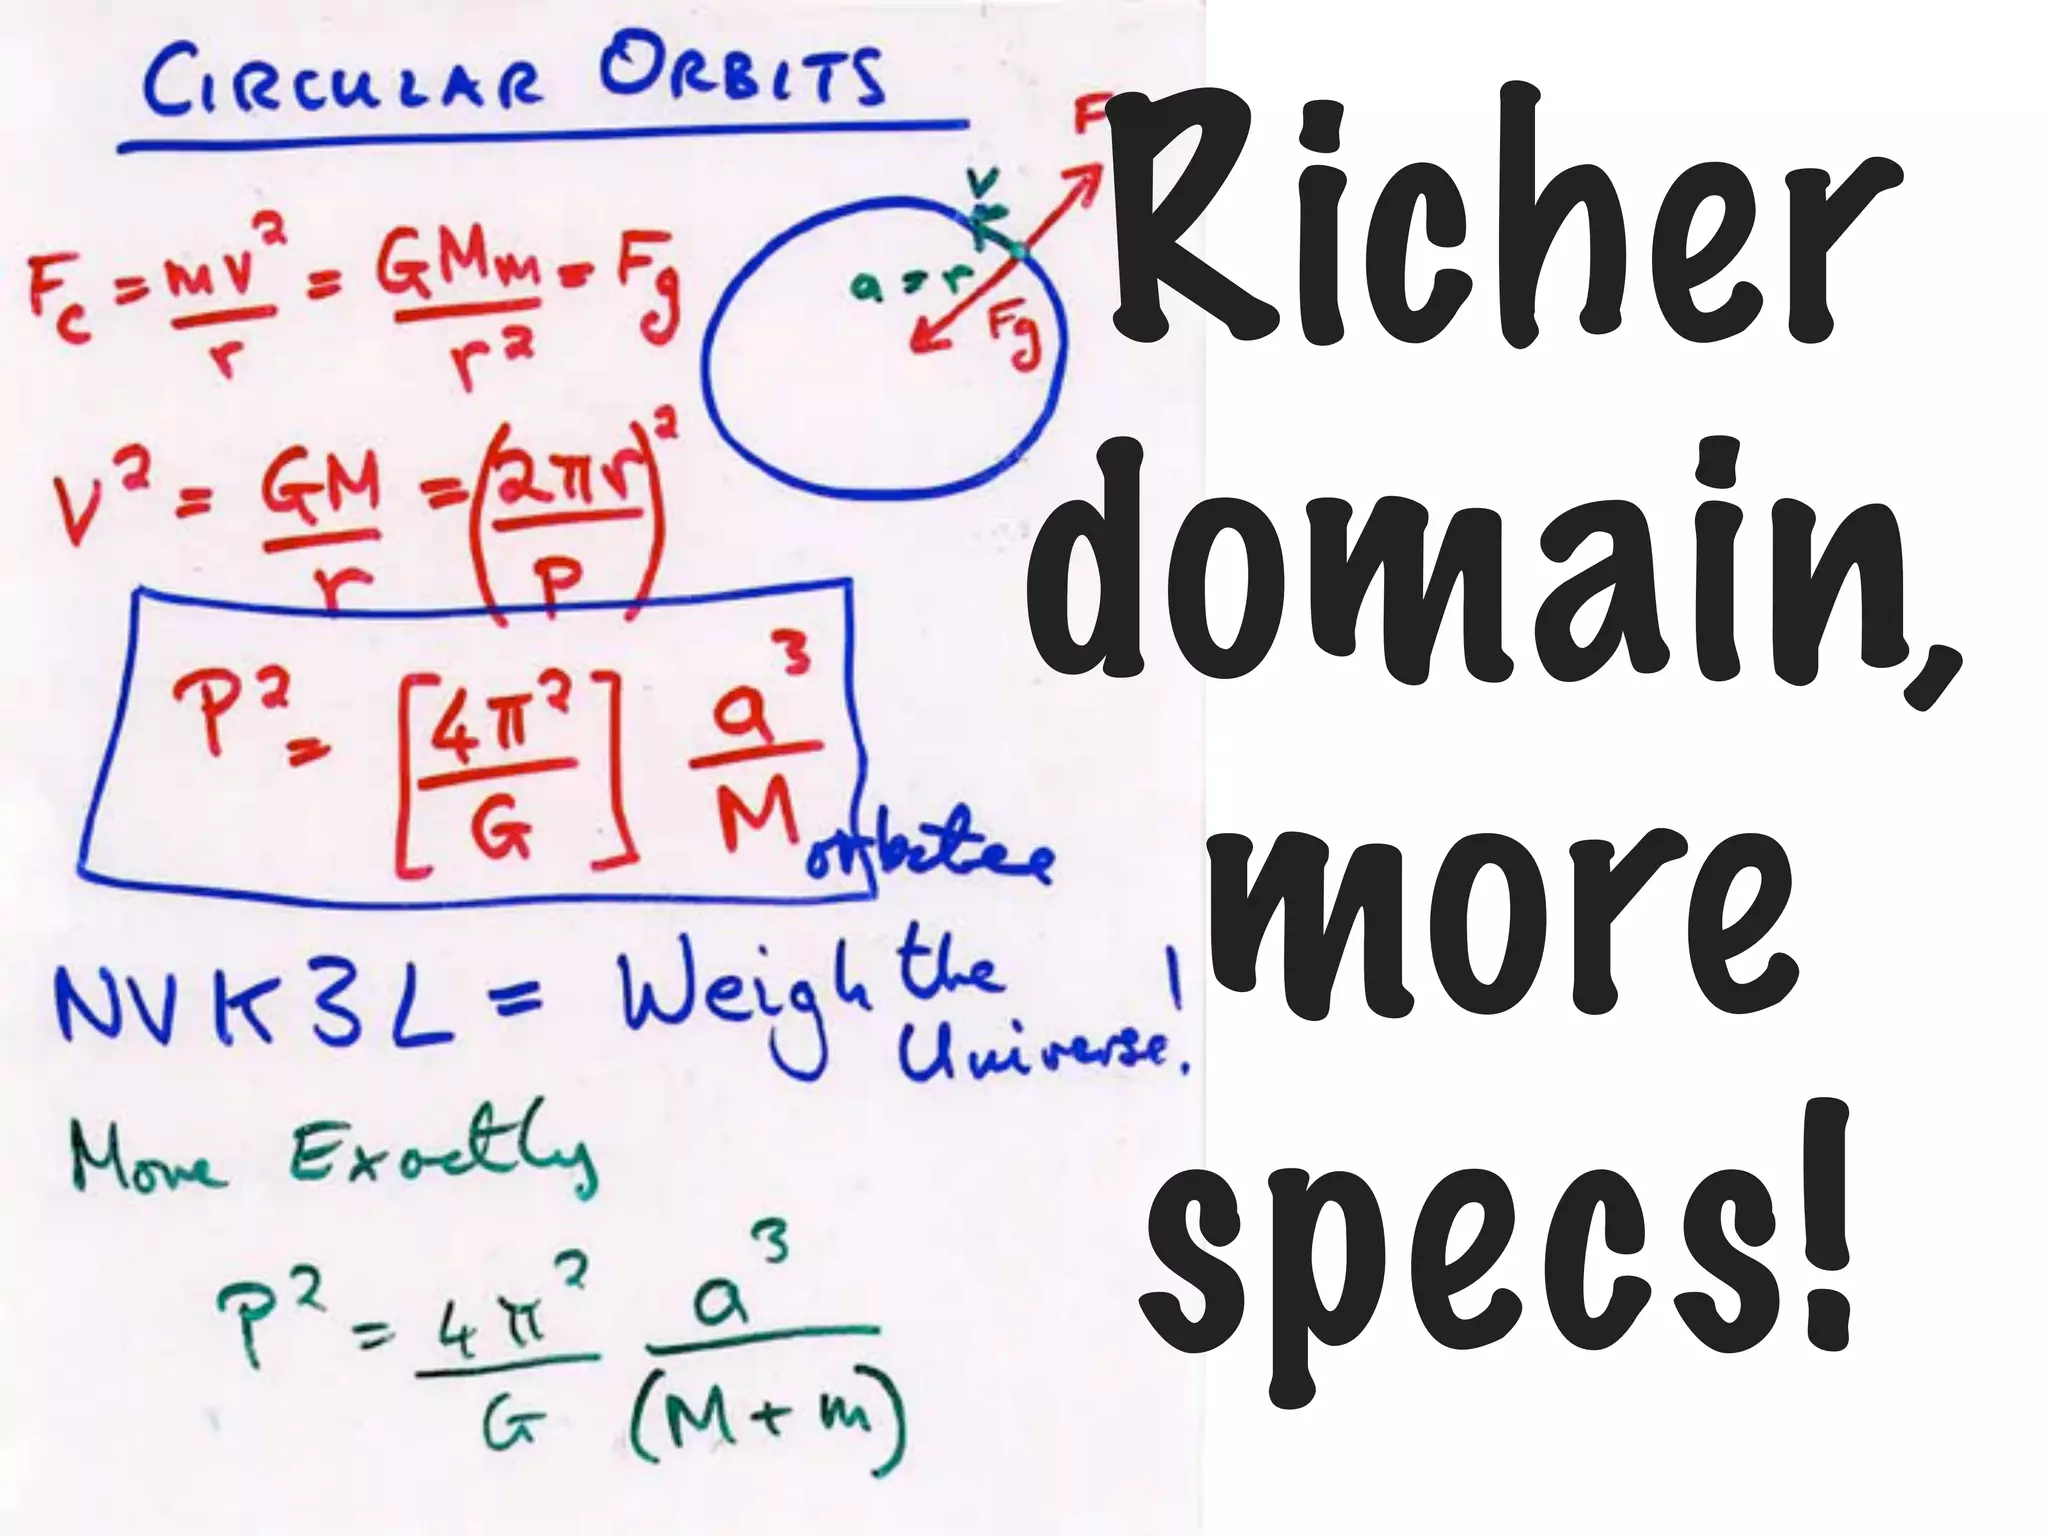 CIRCULAR ORBITS
F
V
a = r
Fg
F_c = mv²/r = GMm/r² = F_g
V² = GM/r = (2πr/P)²
P² = [4π²/G] a³/M orbitee
NVK3L = Weigh the Universe!
More Exactly
P² = 4π²/G a³/(M+m)
Richer
domain,
more
specs!